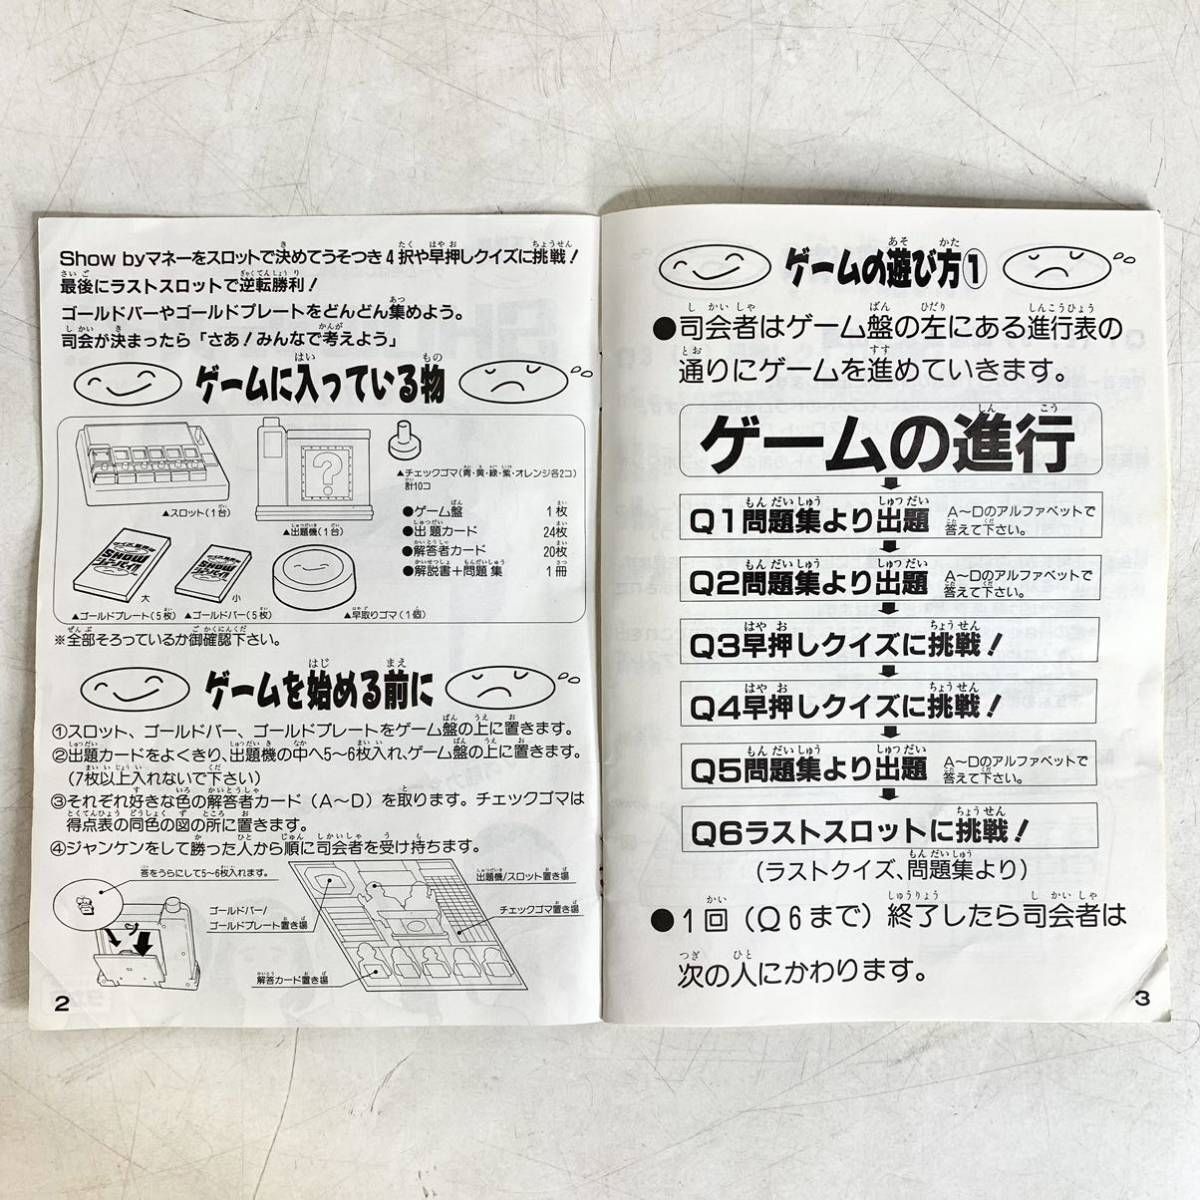 Show byマネーをスロットで決めてうそつき4択や早押しクイズに挑戦!
最後にラストスロットで逆転勝利!
ゴールドバーやゴールドプレートをどんどん集めよう。
司会が決まったら「さあ!みんなで考えよう」
ゲームに入っている物
▲スロット(1台)
▲出題機(1台)
▲チェックゴマ(青・黄・緑・紫・オレンジ各2コ)
計10コ
●ゲーム盤 1枚
●出題カード 24枚
●解答者カード 20枚
●解説書+問題集 1冊
大
小
▲ゴールドプレート(5枚)
▲ゴールドバー(5枚)
▲早取りゴマ(1個)
※全部そろっているか御確認下さい。
ゲームを始める前に
①スロット、ゴールドバー、ゴールドプレートをゲーム盤の上に置きます。
②出題カードをよくきり、出題機の中へ5~6枚入れ、ゲーム盤の上に置きます。
(7枚以上入れないで下さい)
③それぞれ好きな色の解答者カード(A~D)を取ります。チェックゴマは
得点表の同色の図の所に置きます。
④ジャンケンをして勝った人から順に司会者を受け持ちます。
答をうらにして5~6枚入れます。
ゴールドバー/
ゴールドプレート置き場
出題機/スロット置き場
チェックゴマ置き場
解答カード置き場
2
ゲームの遊び方①
●司会者はゲーム盤の左にある進行表の
通りにゲームを進めていきます。
ゲームの進行
Q1問題集より出題 A~Dのアルファベットで
答えて下さい。
Q2問題集より出題 A~Dのアルファベットで
答えて下さい。
Q3早押しクイズに挑戦!
Q4早押しクイズに挑戦!
Q5問題集より出題 A~Dのアルファベットで
答えて下さい。
Q6ラストスロットに挑戦!
(ラストクイズ、問題集より)
●1回(Q6まで)終了したら司会者は
次の人にかわります。
3